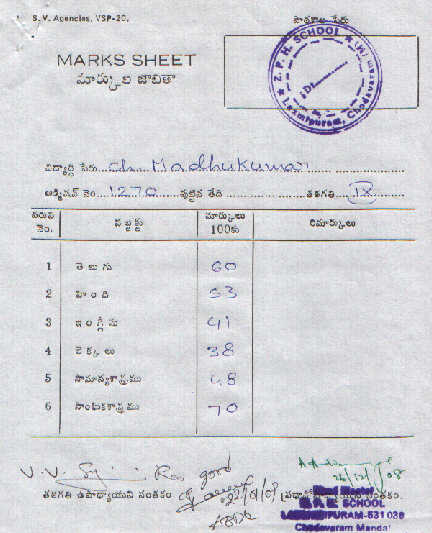 S. V. Agencies, VSP-20.
పాఠశాల పేరు
MARKS SHEET
మార్కుల జాబితా
★ Z. P. H. SCHOOL ★ (H)
Laxmipuram, Chodavaram
విద్యార్థి పేరు Ch. Madhukumar
అడ్మిషన్ నెం. 1270 పుట్టిన తేది తరగతి IX
వరుస నెం. సబ్జెక్టు మార్కులు 100కు రిమార్కులు
1 తెలుగు 60
2 హింది 53
3 ఇంగ్లీషు 41
4 లెక్కలు 38
5 సామాన్యశాస్త్రము 48
6 సాంఘికశాస్త్రము 70
good
తరగతి ఉపాధ్యాయుని సంతకం సంతకం.
Head Master
Z. P. H. SCHOOL
LAXMIPURAM-531 036
Chodavaram Mandal